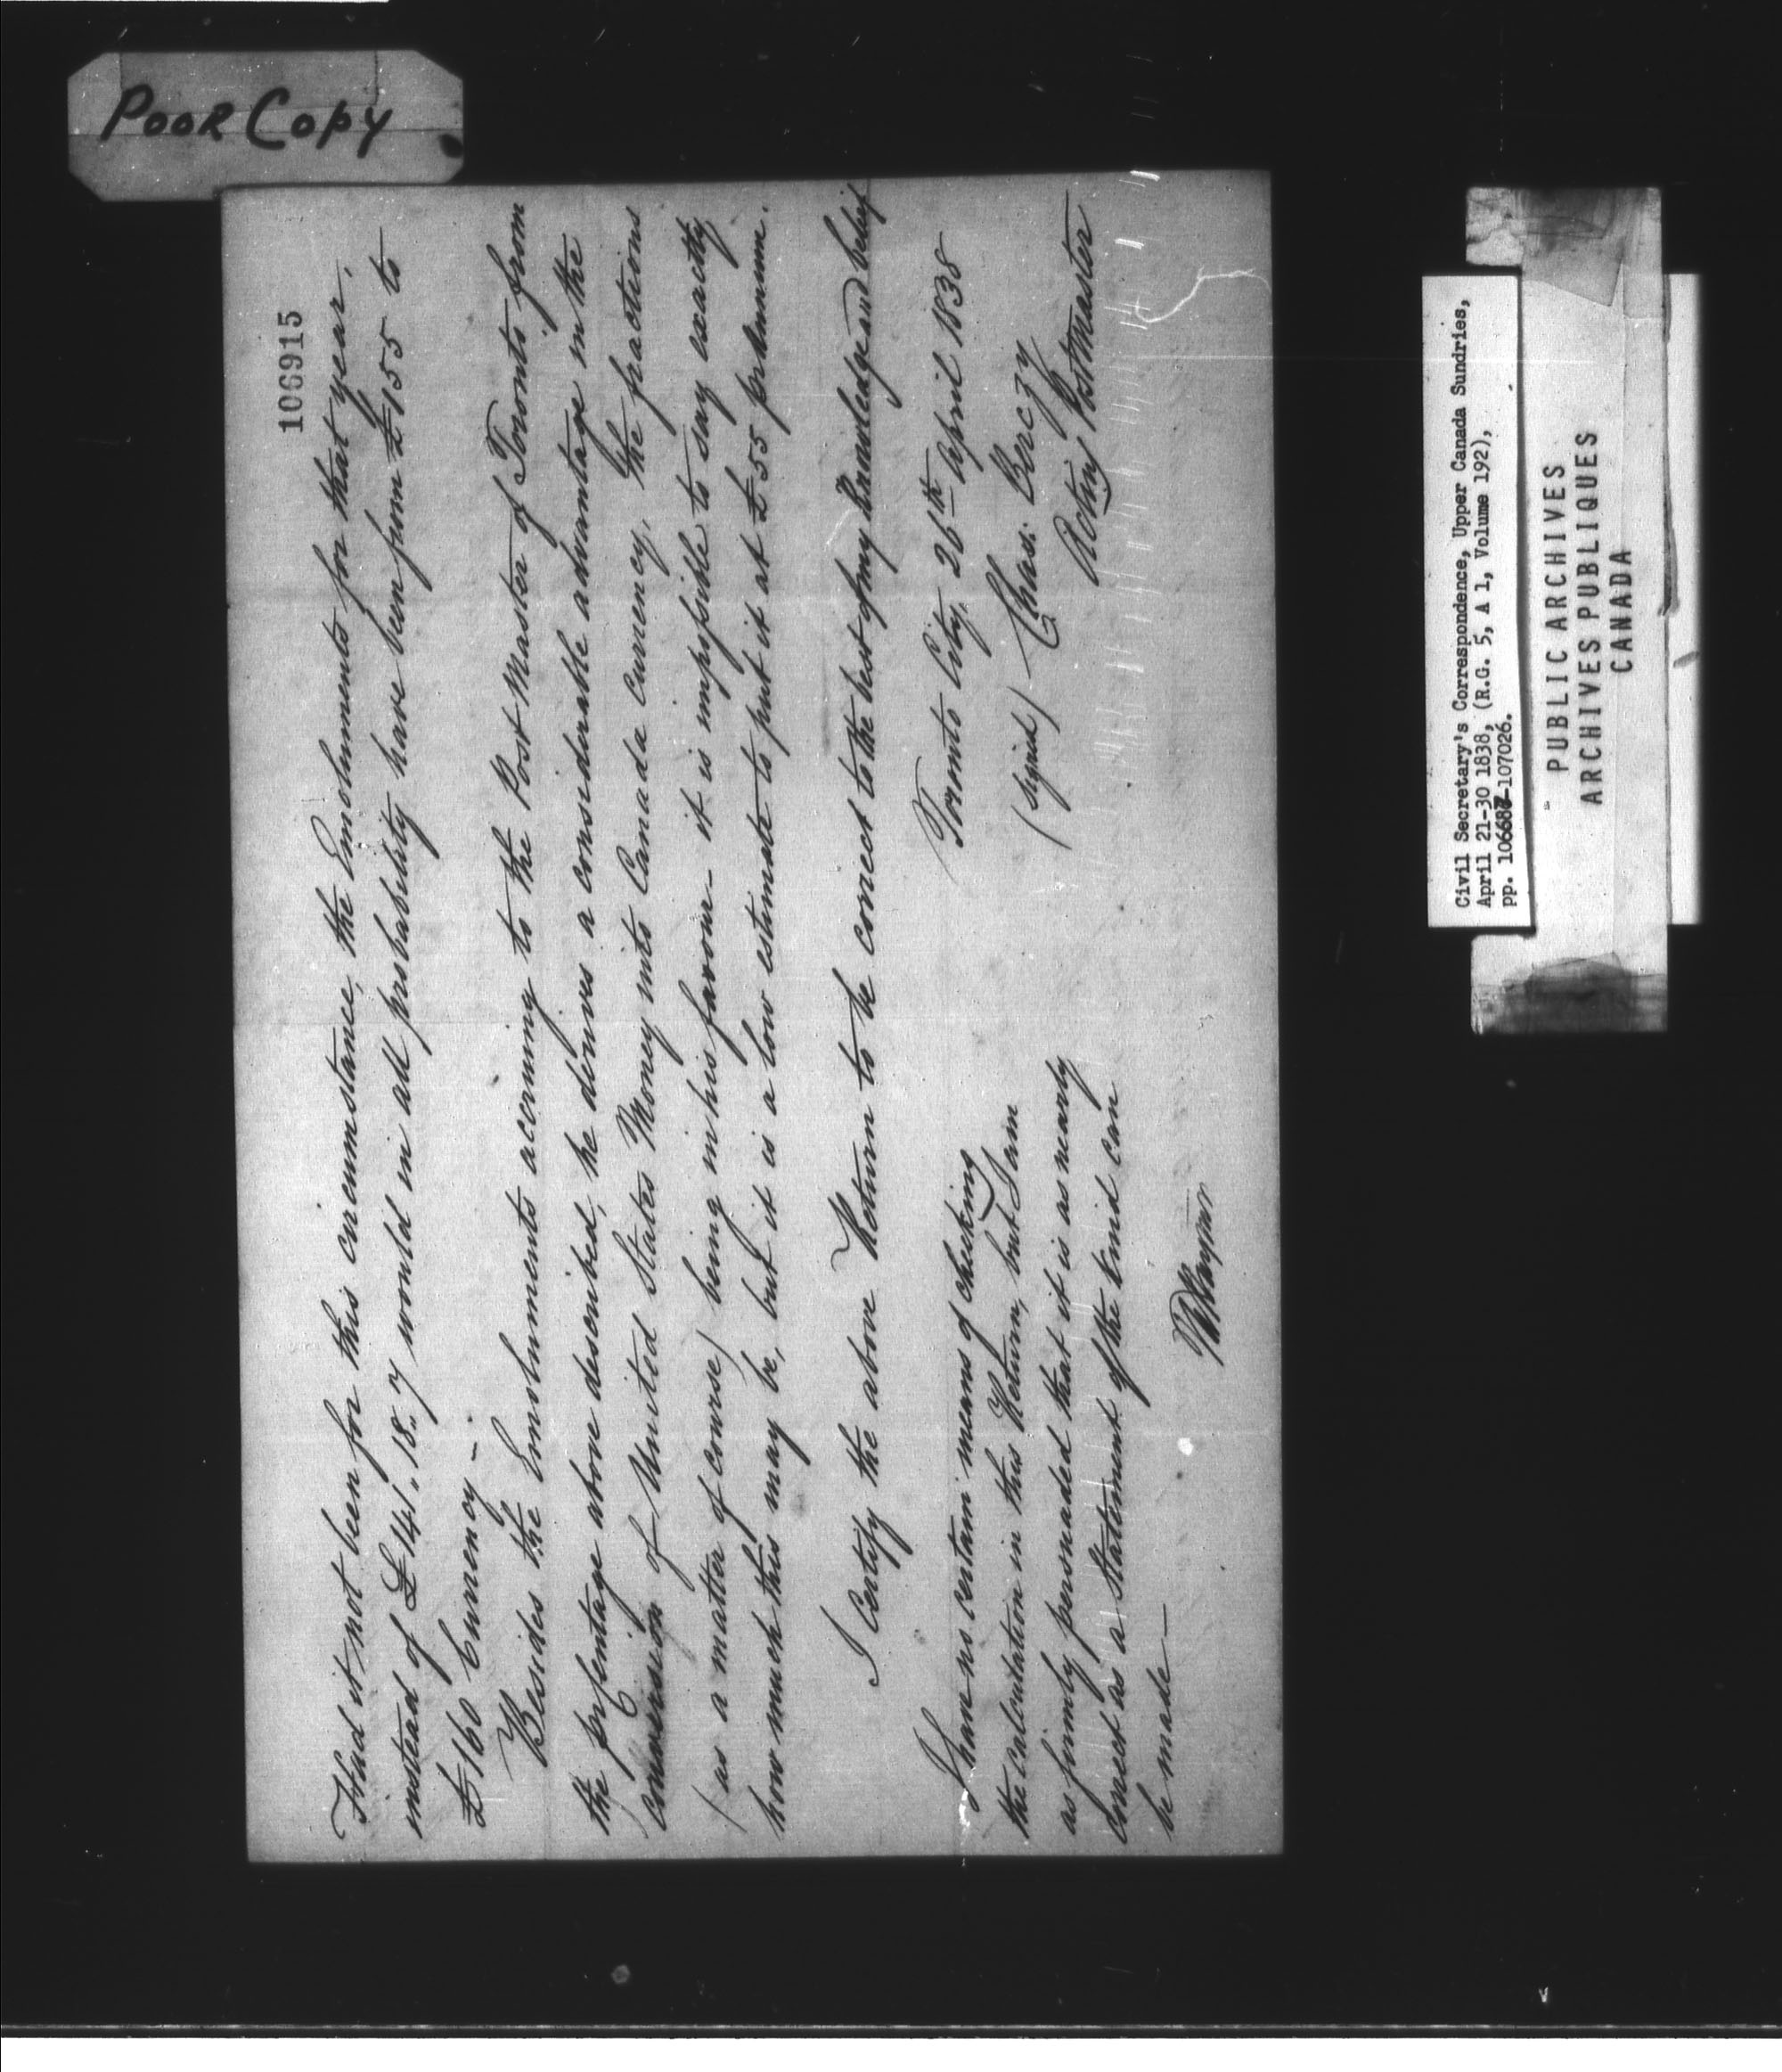 POOR COPY
106915
Had it not been for this circumstance, the Emoluments for that year,
instead of £141.. 18..7 would in all probability have been from £155 to
£160 Currency –.
Besides the Emoluments accruing to the Post Master of Toronto from
the per%centage above described, he derives a considerable advantage in the
conversion of United States Money into Canada Currency, the fractions
(as a matter of course) being in his favour – it is impossible to say exactly
how much this may be, but it is a low estimate to put it at £55 p annum.
I Certify the above Return to be correct to the best of my Knowledge and belief
Toronto City, 26th April 1838
(signed) Chas: Berczy
Acting Postmaster
I have no certain means of checking
the Calculation in this Return, but I am
as firmly persuaded that it is as nearly
correct as a Statement of the kind can
be made –
Civil Secretary's Correspondence, Upper Canada Sundries,
April 21-30 1838, (R.G. 5, A 1, Volume 192),
pp. 106687-107026.
PUBLIC ARCHIVES
ARCHIVES PUBLIQUES
CANADA